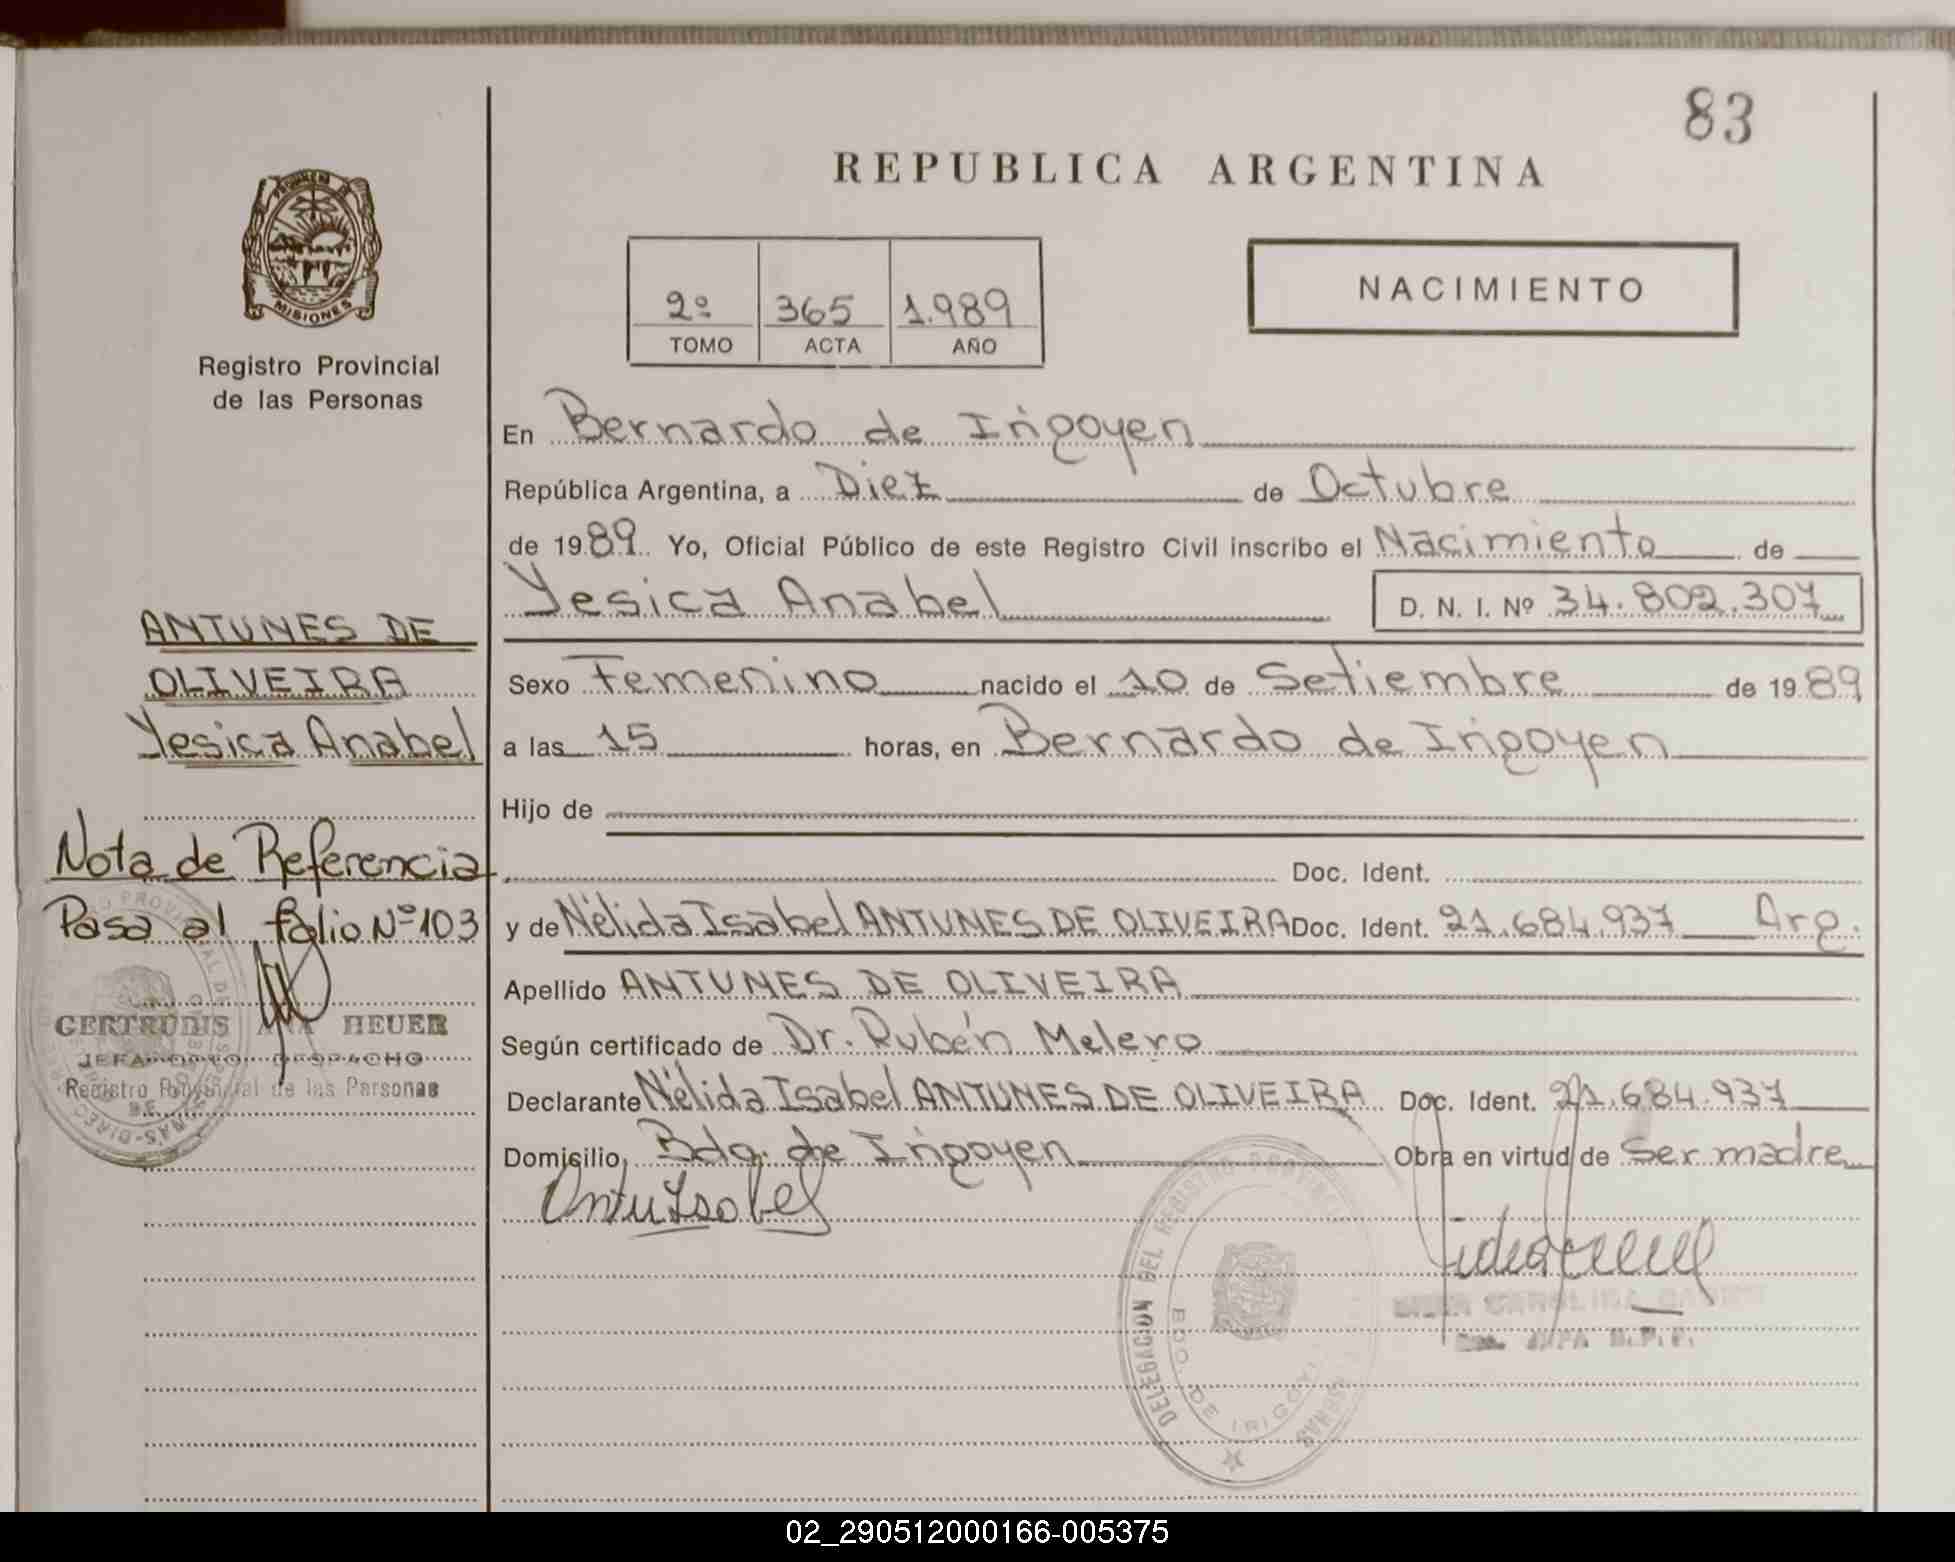 83
REPUBLICA ARGENTINA
PROVINCIA DE
MISIONES
Registro Provincial
de las Personas
2º 365 1.989
TOMO ACTA AÑO
NACIMIENTO
En Bernardo de Irigoyen
República Argentina, a Diez de Octubre
de 1989. Yo, Oficial Público de este Registro Civil inscribo el Nacimiento de
Yesica Anabel D. N. I. Nº 34.802.307
ANTUNES DE
OLIVEIRA
Yesica Anabel
Sexo Femenino nacido el 10 de Setiembre de 1989
a las 15 horas, en Bernardo de Irigoyen
Hijo de
Doc. Ident.
Nota de Referencia
Pasa al folio Nº 103
y de Nélida Isabel ANTUNES DE OLIVEIRA Doc. Ident. 21.684.937 Arg.
Apellido ANTUNES DE OLIVEIRA
GERTRUDIS ANA HEUER
JEFA DPTO. DESPACHO
Registro Provincial de las Personas
Según certificado de Dr. Rubén Melero
Declarante Nélida Isabel ANTUNES DE OLIVEIRA Doc. Ident. 21.684.937
Domicilio, Bdo. de Irigoyen Obra en virtud de Ser madre
Antu Isabel
DELEGACION DEL REGISTRO PROVINCIAL
BDO. DE IRIGOYEN
02_290512000166-005375